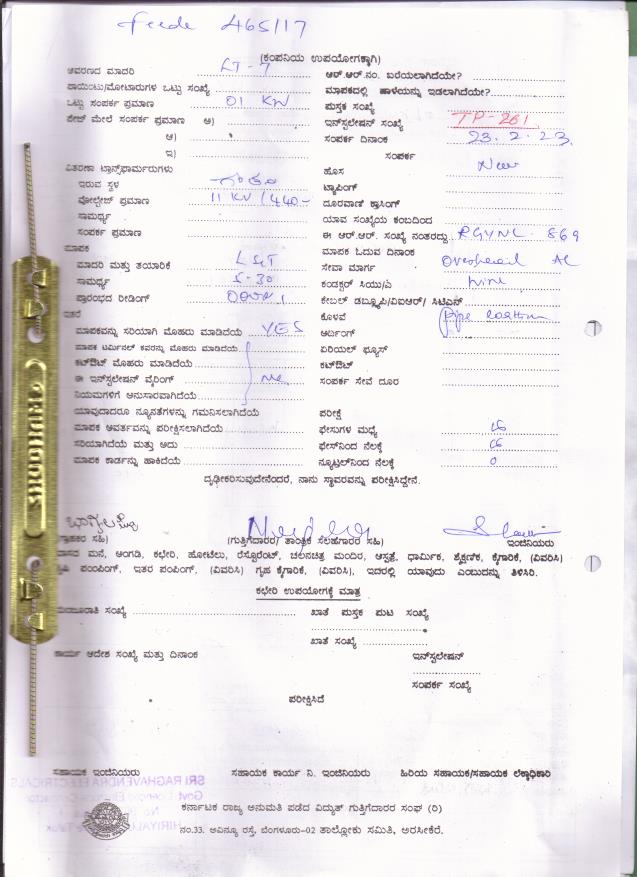 465/17
(ಕಂಪನಿಯ ಉಪಯೋಗಕ್ಕಾಗಿ)
ಆವರಣದ ಮಾದರಿ LT-7
ಪಾಯಿಂಟು/ಮೋಟಾರುಗಳ ಒಟ್ಟು ಸಂಖ್ಯೆ
ಒಟ್ಟು ಸಂಪರ್ಕ ಪ್ರಮಾಣ 01 KW
ಪೇಜ್ ಮೇಲೆ ಸಂಪರ್ಕ ಪ್ರಮಾಣ ಅ)
ಆ)
ಇ)
ವಿತರಣಾ ಟ್ರಾನ್ಸ್‌ಫಾರ್ಮರುಗಳು
ಇರುವ ಸ್ಥಳ
ವೋಲ್ಟೇಜ್ ಪ್ರಮಾಣ 11 KV / 440-
ಸಾಮರ್ಥ್ಯ
ಸಂಪರ್ಕ ಪ್ರಮಾಣ
ಮಾಪಕ
ಮಾದರಿ ಮತ್ತು ತಯಾರಿಕೆ L&T
ಸಾಮರ್ಥ್ಯ 5-30
ಪ್ರಾರಂಭದ ರೀಡಿಂಗ್
ಇತರೆ
ಮಾಪಕವನ್ನು ಸರಿಯಾಗಿ ಮೊಹರು ಮಾಡಿದೆಯೆ YES
ಮಾಪಕ ಟರ್ಮಿನಲ್ ಕವರನ್ನು ಮೊಹರು ಮಾಡಿದೆಯೆ
ಕಟ್‌ಔಟ್ ಮೊಹರು ಮಾಡಿದೆಯೆ
ಈ ಇನ್‌ಸ್ಟಲೇಷನ್ ವೈರಿಂಗ್
ನಿಯಮಗಳಿಗೆ ಅನುಸಾರವಾಗಿದೆಯೆ
ಯಾವುದಾದರೂ ನ್ಯೂನತೆಗಳನ್ನು ಗಮನಿಸಲಾಗಿದೆಯೆ
ಮಾಪಕ ಅವರ್ತವನ್ನು ಪರೀಕ್ಷಿಸಲಾಗಿದೆಯೆ
ಸರಿಯಾಗಿದೆಯೆ ಮತ್ತು ಅದು
ಮಾಪಕ ಕಾರ್ಡನ್ನು ಹಾಕಿದೆಯೆ
ಆರ್.ಆರ್.ನಂ. ಬರೆಯಲಾಗಿದೆಯೇ?
ಮಾಪಕದಲ್ಲಿ ಹಾಳೆಯನ್ನು ಇಡಲಾಗಿದೆಯೇ?
ಪುಸ್ತಕ ಸಂಖ್ಯೆ
ಇನ್‌ಸ್ಟಲೇಷನ್ ಸಂಖ್ಯೆ TP-261
ಸಂಪರ್ಕ ದಿನಾಂಕ 23.2.23
ಸಂಪರ್ಕ
ಹೊಸ New
ಟ್ಯಾಪಿಂಗ್
ದೂರವಾಣಿ ಕ್ರಾಸಿಂಗ್
ಯಾವ ಸಂಖ್ಯೆಯ ಕಂಬದಿಂದ
ಈ ಆರ್.ಆರ್. ಸಂಖ್ಯೆ ನಂತರದ್ದು 869
ಮಾಪಕ ಓದುವ ದಿನಾಂಕ
ಸೇವಾ ಮಾರ್ಗ Overhead AC
ಕಂಡಕ್ಟರ್ ಸಿಯು/ಎ wire
ಕೇಬಲ್ ಡಬ್ಲ್ಯೂಪಿ/ವಿಐಆರ್/ ಸಿಟಿಎಸ್
ಕೊಳವೆ
ಅರ್ದಿಂಗ್
ಏರಿಯಲ್ ಫ್ಯೂಸ್
ಕಟ್‌ಔಟ್
ಸಂಪರ್ಕ ಸೇವೆ ದೂರ
ಪರೀಕ್ಷೆ
ಫೇಸುಗಳ ಮಧ್ಯೆ
ಫೇಸ್‌ನಿಂದ ನೆಲಕ್ಕೆ
ನ್ಯೂಟ್ರಲ್‌ನಿಂದ ನೆಲಕ್ಕೆ 0
ದೃಢೀಕರಿಸುವುದೇನೆಂದರೆ, ನಾನು ಸ್ಥಾವರವನ್ನು ಪರೀಕ್ಷಿಸಿದ್ದೇನೆ.
(ಗುತ್ತಿಗೆದಾರರ/ ತಾಂತ್ರಿಕ ಸಲಹೆಗಾರರ ಸಹಿ) ಇಂಜಿನಿಯರು
ಮನೆ, ಅಂಗಡಿ, ಕಛೇರಿ, ಹೋಟೆಲು, ರೆಸ್ಟೊರೆಂಟ್, ಚಲನಚಿತ್ರ ಮಂದಿರ, ಆಸ್ಪತ್ರೆ, ಧಾರ್ಮಿಕ, ಶೈಕ್ಷಣಿಕ, ಕೈಗಾರಿಕೆ, (ವಿವರಿಸಿ)
ಪಂಪಿಂಗ್, ಇತರ ಪಂಪಿಂಗ್, (ವಿವರಿಸಿ) ಗೃಹ ಕೈಗಾರಿಕೆ, (ವಿವರಿಸಿ), ಇದರಲ್ಲಿ ಯಾವುದು ಎಂಬುದನ್ನು ತಿಳಿಸಿರಿ.
ಕಛೇರಿ ಉಪಯೋಗಕ್ಕೆ ಮಾತ್ರ
ಸಂಖ್ಯೆ ಖಾತೆ ಪುಸ್ತಕ ಪುಟ ಸಂಖ್ಯೆ
ಖಾತೆ ಸಂಖ್ಯೆ
ಕಾರ್ಯ ಆದೇಶ ಸಂಖ್ಯೆ ಮತ್ತು ದಿನಾಂಕ ಇನ್‌ಸ್ಟಲೇಷನ್
ಸಂಪರ್ಕ ಸಂಖ್ಯೆ
ಪರೀಕ್ಷಿಸಿದೆ
ಸಹಾಯಕ ಇಂಜಿನಿಯರು ಸಹಾಯಕ ಕಾರ್ಯ ನಿ. ಇಂಜಿನಿಯರು ಹಿರಿಯ ಸಹಾಯಕ/ಸಹಾಯಕ ಲೆಕ್ಕಾಧಿಕಾರಿ
SRI RAGHAVENDRA ELECTRICALS
ಕರ್ನಾಟಕ ರಾಜ್ಯ ಅನುಮತಿ ಪಡೆದ ವಿದ್ಯುತ್ ಗುತ್ತಿಗೆದಾರರ ಸಂಘ (ರಿ)
ನಂ.33. ಅವಿನ್ಯೂ ರಸ್ತೆ, ಬೆಂಗಳೂರು-02 ತಾಲ್ಲೋಕು ಸಮಿತಿ, ಅರಸೀಕೆರೆ.